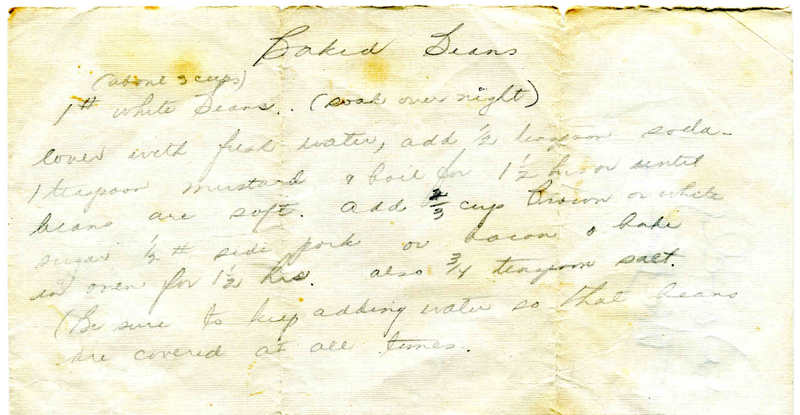 Baked Beans
(about 3 cups)
1# white Beans.. (soak over night)
Cover with fresh water, add ½ teaspoon soda-
1 teaspoon mustard & boil for 1½ hr or until
beans are soft. Add 2/3 cup brown or white
sugar ½ # side pork or bacon & bake
in oven for 1½ hrs. Also ¾ teaspoon salt.
(Be sure to keep adding water so that beans
are covered at all times.